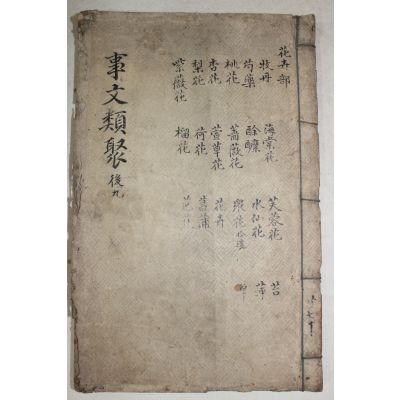 花卉部
牧丹 海棠花 芙蓉花 苔
芍藥 酴醾 水仙花 萍
桃花 薔薇花 瓊花
杏花 萱草花 花卉 草
梨花 荷花 菖蒲
紫薇花 榴花
事文類聚 後九